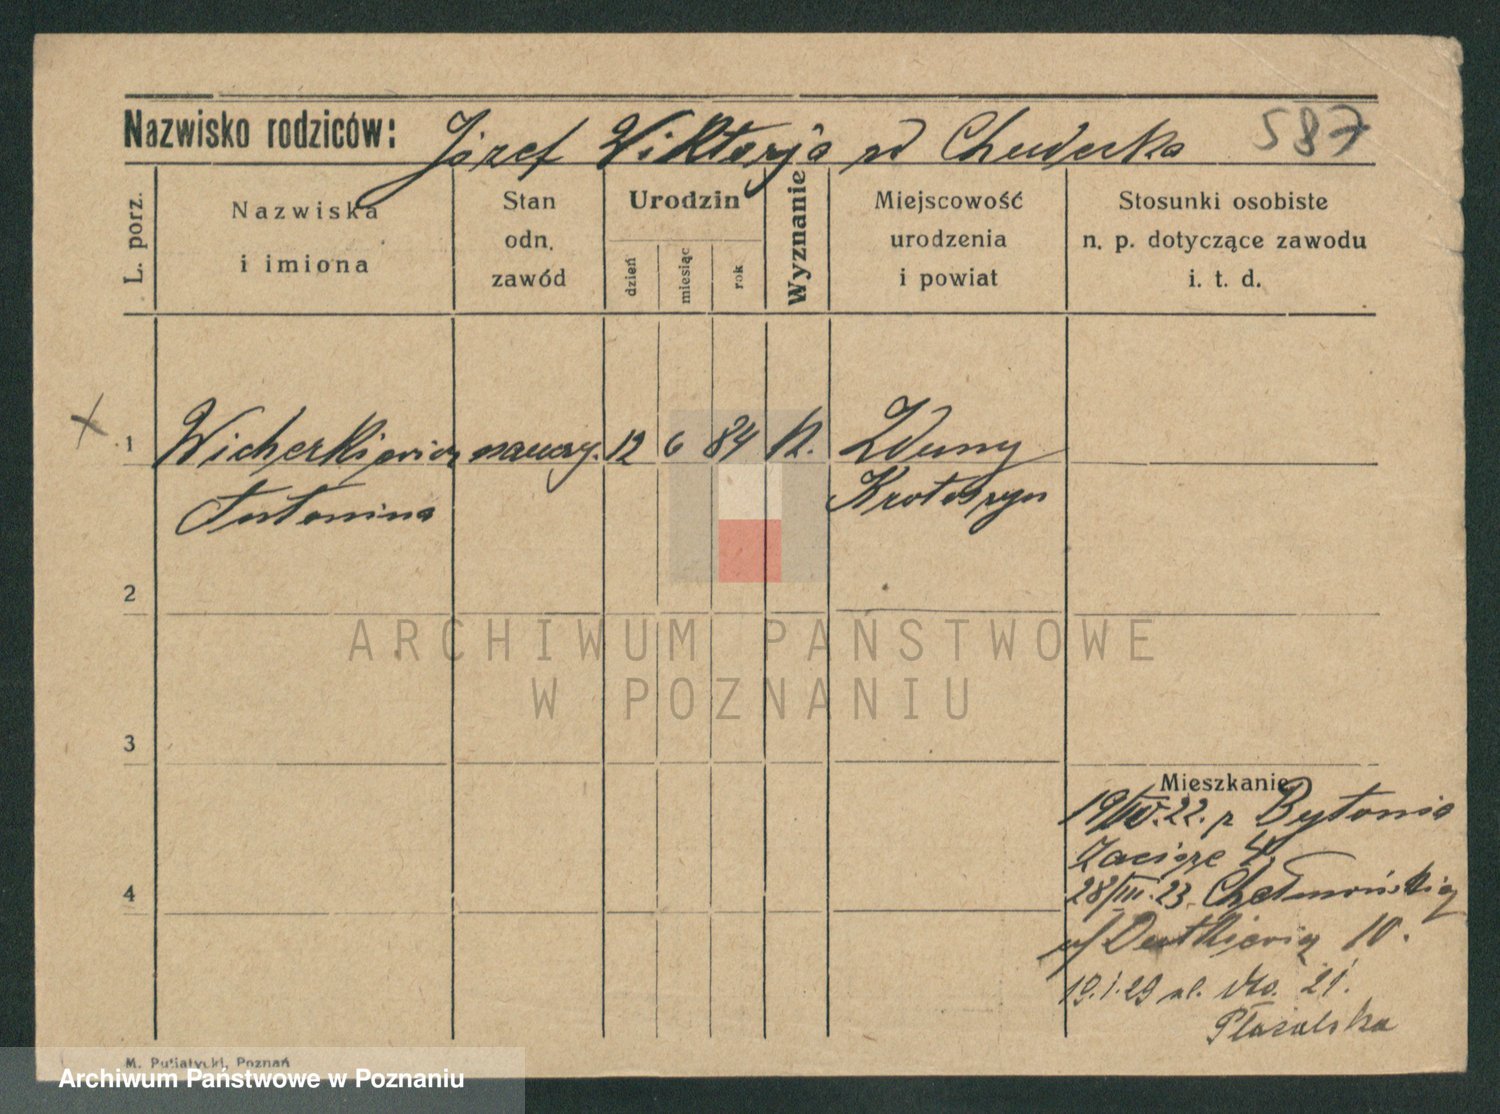 Nazwisko rodziców: Józef Wiktorja Chudecka 587
L. porz.
Nazwiska
i imiona
Stan
odn.
zawód
Urodzin
dzień
miesiąc
rok
Wyznanie
Miejscowość
urodzenia
i powiat
Stosunki osobiste
n. p. dotyczące zawodu
i. t. d.
x 1 Wicherkiewicz nauczy. 12 6 84 k. Zduny
Antonina Krotoszyn
2
ARCHIWUM PAŃSTWOWE
W POZNANIU
3
Mieszkanie
19/IV.22. z Bytomia
Zacisze 4
4
28/III.23. Chełmońskiej
10.
19.1.29 21.
M. Putiatycki, Poznań
Archiwum Państwowe w Poznaniu